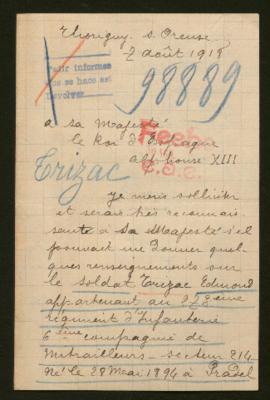 Thorigny s. Oreuse
2 août 1918
Pedir informes
que se hace est
Devolver
98889
a sa Majesté
le Roi d'Espagne
Alphonse XIII
Trizac
je viens solliciter
et serais très reconnais
sante à Sa Majesté s'il
pouvait me donner quel-
ques renseignements sur
le soldat Trizac Edmond
appartenant au 328eme
régiment d'Infanterie
6eme compagnie de
Mitrailleurs - secteur 214
Né le 28 Mai 1894 à Pradel